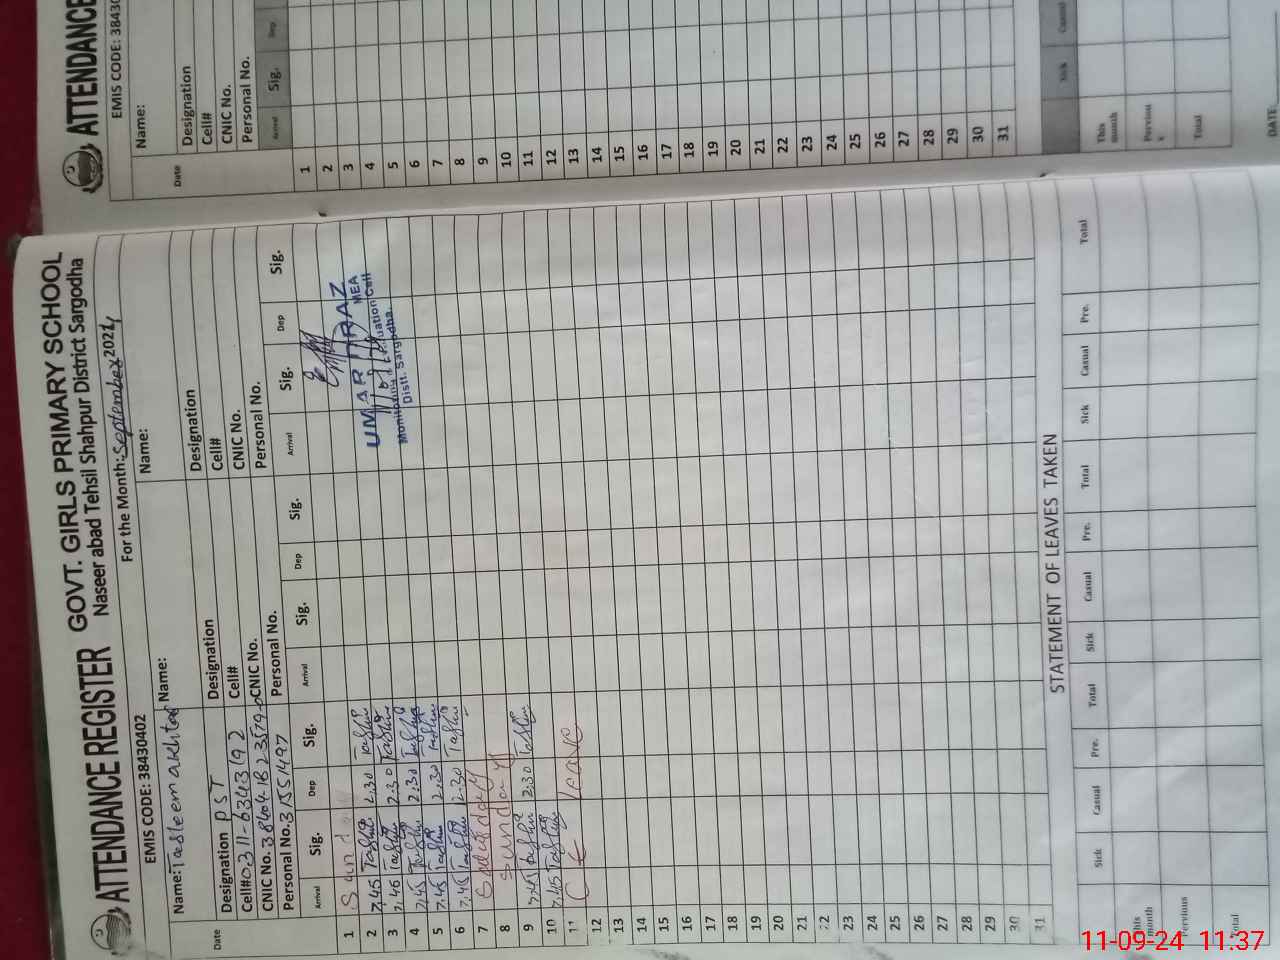 ATTENDANCE REGISTER GOVT. GIRLS PRIMARY SCHOOL
Naseer abad Tehsil Shahpur District Sargodha
EMIS CODE: 38430402 For the Month: September 2024
Name: Tasleem akhtar Name: Name:
Designation PST Designation Designation
Cell# 0311-6343192 Cell# Cell#
CNIC No. CNIC No. CNIC No.
Personal No. 31551497 Personal No. Personal No.
Date Arrival Sig. Dep Sig. Arrival Sig. Dep Sig. Arrival Sig. Dep Sig.
1 Sunday
2 7.45 2.30
3 7.45 2.30
4 7.45 2.30
5 7.45 2.30
6 7.45 2.30
7
8 Sunday
9 7.45 2.30
10 7.45
11 leave
12
13
14
15
16
17
18
19
20
21
22
23
24
25
26
27
28
29
30
31
UMAR DRAZ
MEA
Monitoring & Evaluation Cell
Distt. Sargodha.
STATEMENT OF LEAVES TAKEN
Sick Casual Pre. Total Sick Casual Pre. Total Sick Casual Pre. Total
This month
Pervious
Total
ATTENDANCE
EMIS CODE: 3843
Name:
Designation
Cell#
CNIC No.
Personal No.
Date Arrival Sig. Dep
1
2
3
4
5
6
7
8
9
10
11
12
13
14
15
16
17
18
19
20
21
22
23
24
25
26
27
28
29
30
31
Sick Casual
This month
Perviou s
Total
DATE:
11-09-24 11:37